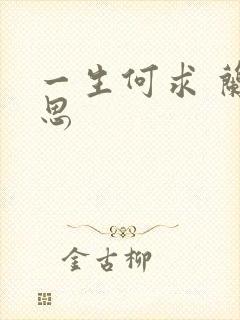 一生何求 蘭
思
金古柳